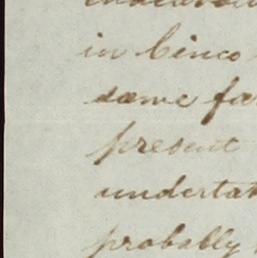 in Cinco
same fa
present
undertak
probably